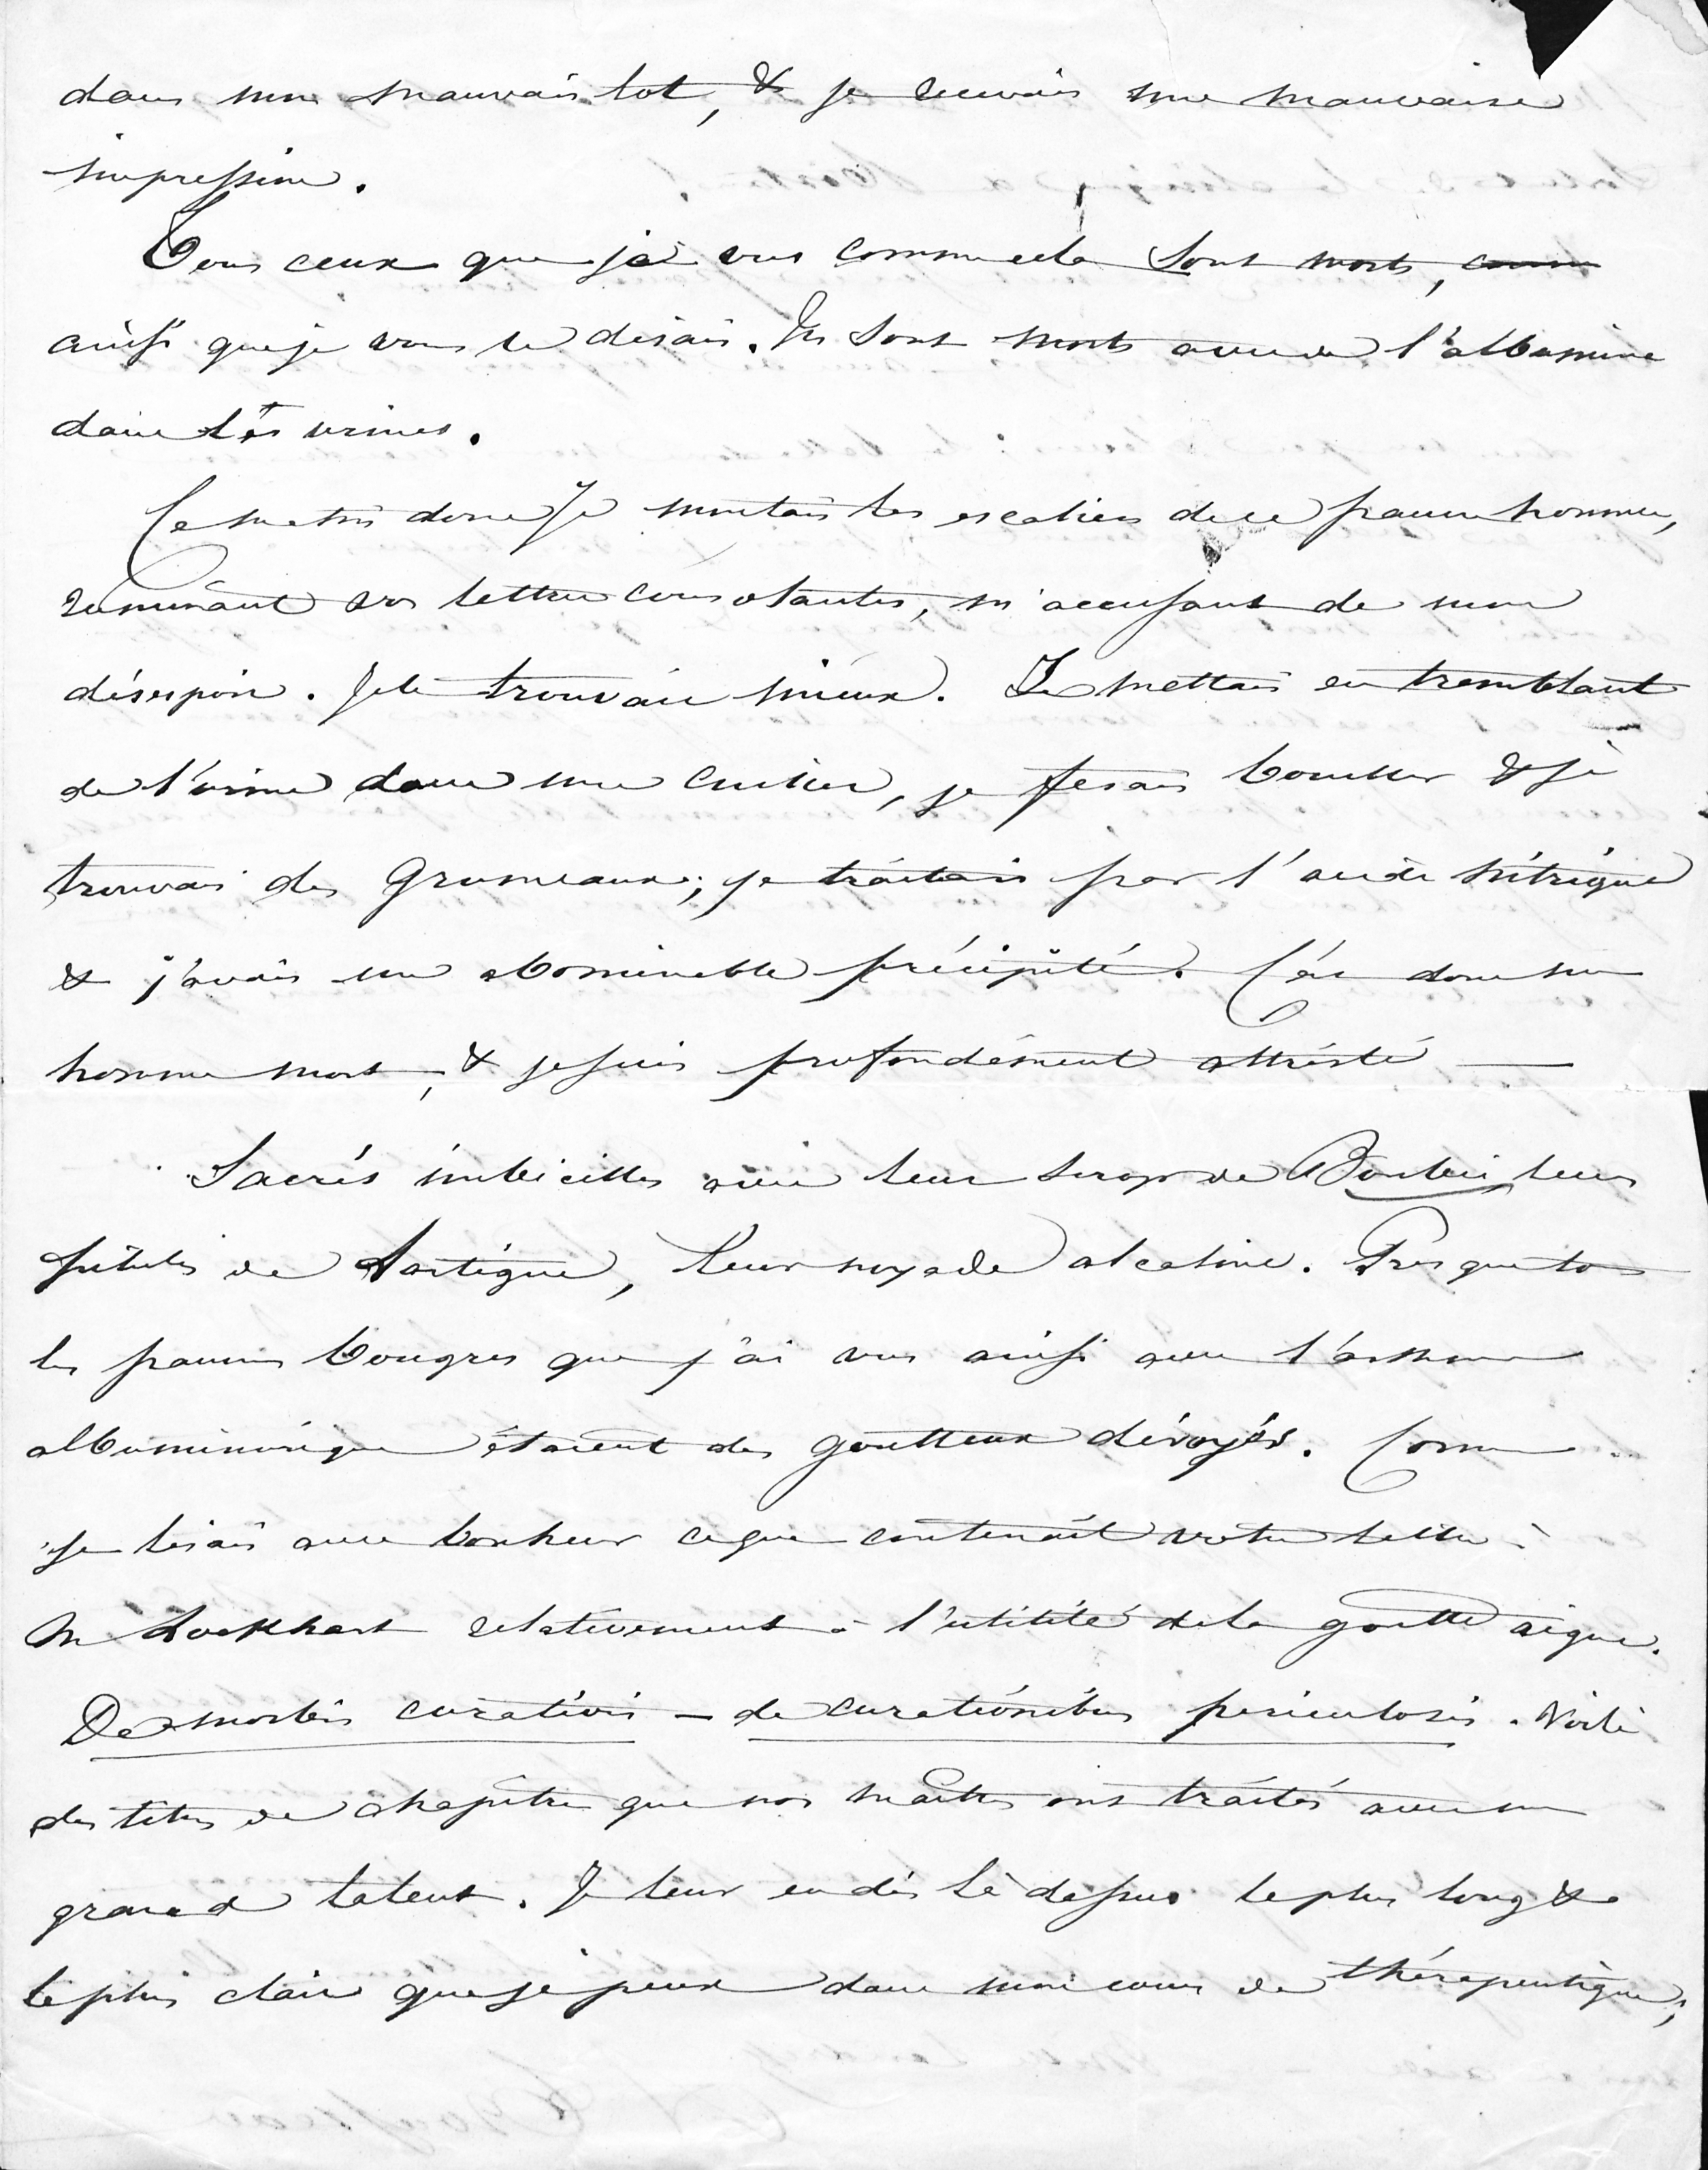 dans un mauvais lot, & je recevais une mauvaise
impression.
Tous ceux que j'ai vus comme cela sont morts,
ainsi que je vous le disais. Ils sont morts avec de l'albumine
dans les urines.
Ce matin donc je montais les escaliers de ce pauvre homme,
ruminant vos lettres consolantes, m'accusant de mon
désespoir. Je le trouvais mieux. Je mettais en tremblant
de l'urine dans une cuiller, je fesais bouillir & je
trouvais des grumeaux; je traitais par l'acide nitrique
& j'avais un abominable précipité. C'est donc un
homme mort, & je suis profondément attristé —
Sacrés imbécilles avec leur sirop de Boubée, leurs
pilules de Lartigue, leur noyade alcaline. Presque tous
les pauvres bougres que j'ai vus ainsi avec l'asthme
albuminurique étaient des goutteux dévoyés. Comme
je lisais avec bonheur ce que contenait votre lettre à
M Lockhart relativement à l'utilité de la goutte aigue.
De morbis curativis – de curationibus periculosis. Voilà
des titres de chapitre que nos maîtres ont traités avec un
grand talent. Je leur en dis là dessus le plus long & le
le plus clair que je peux dans mon cours de thérapeutique;